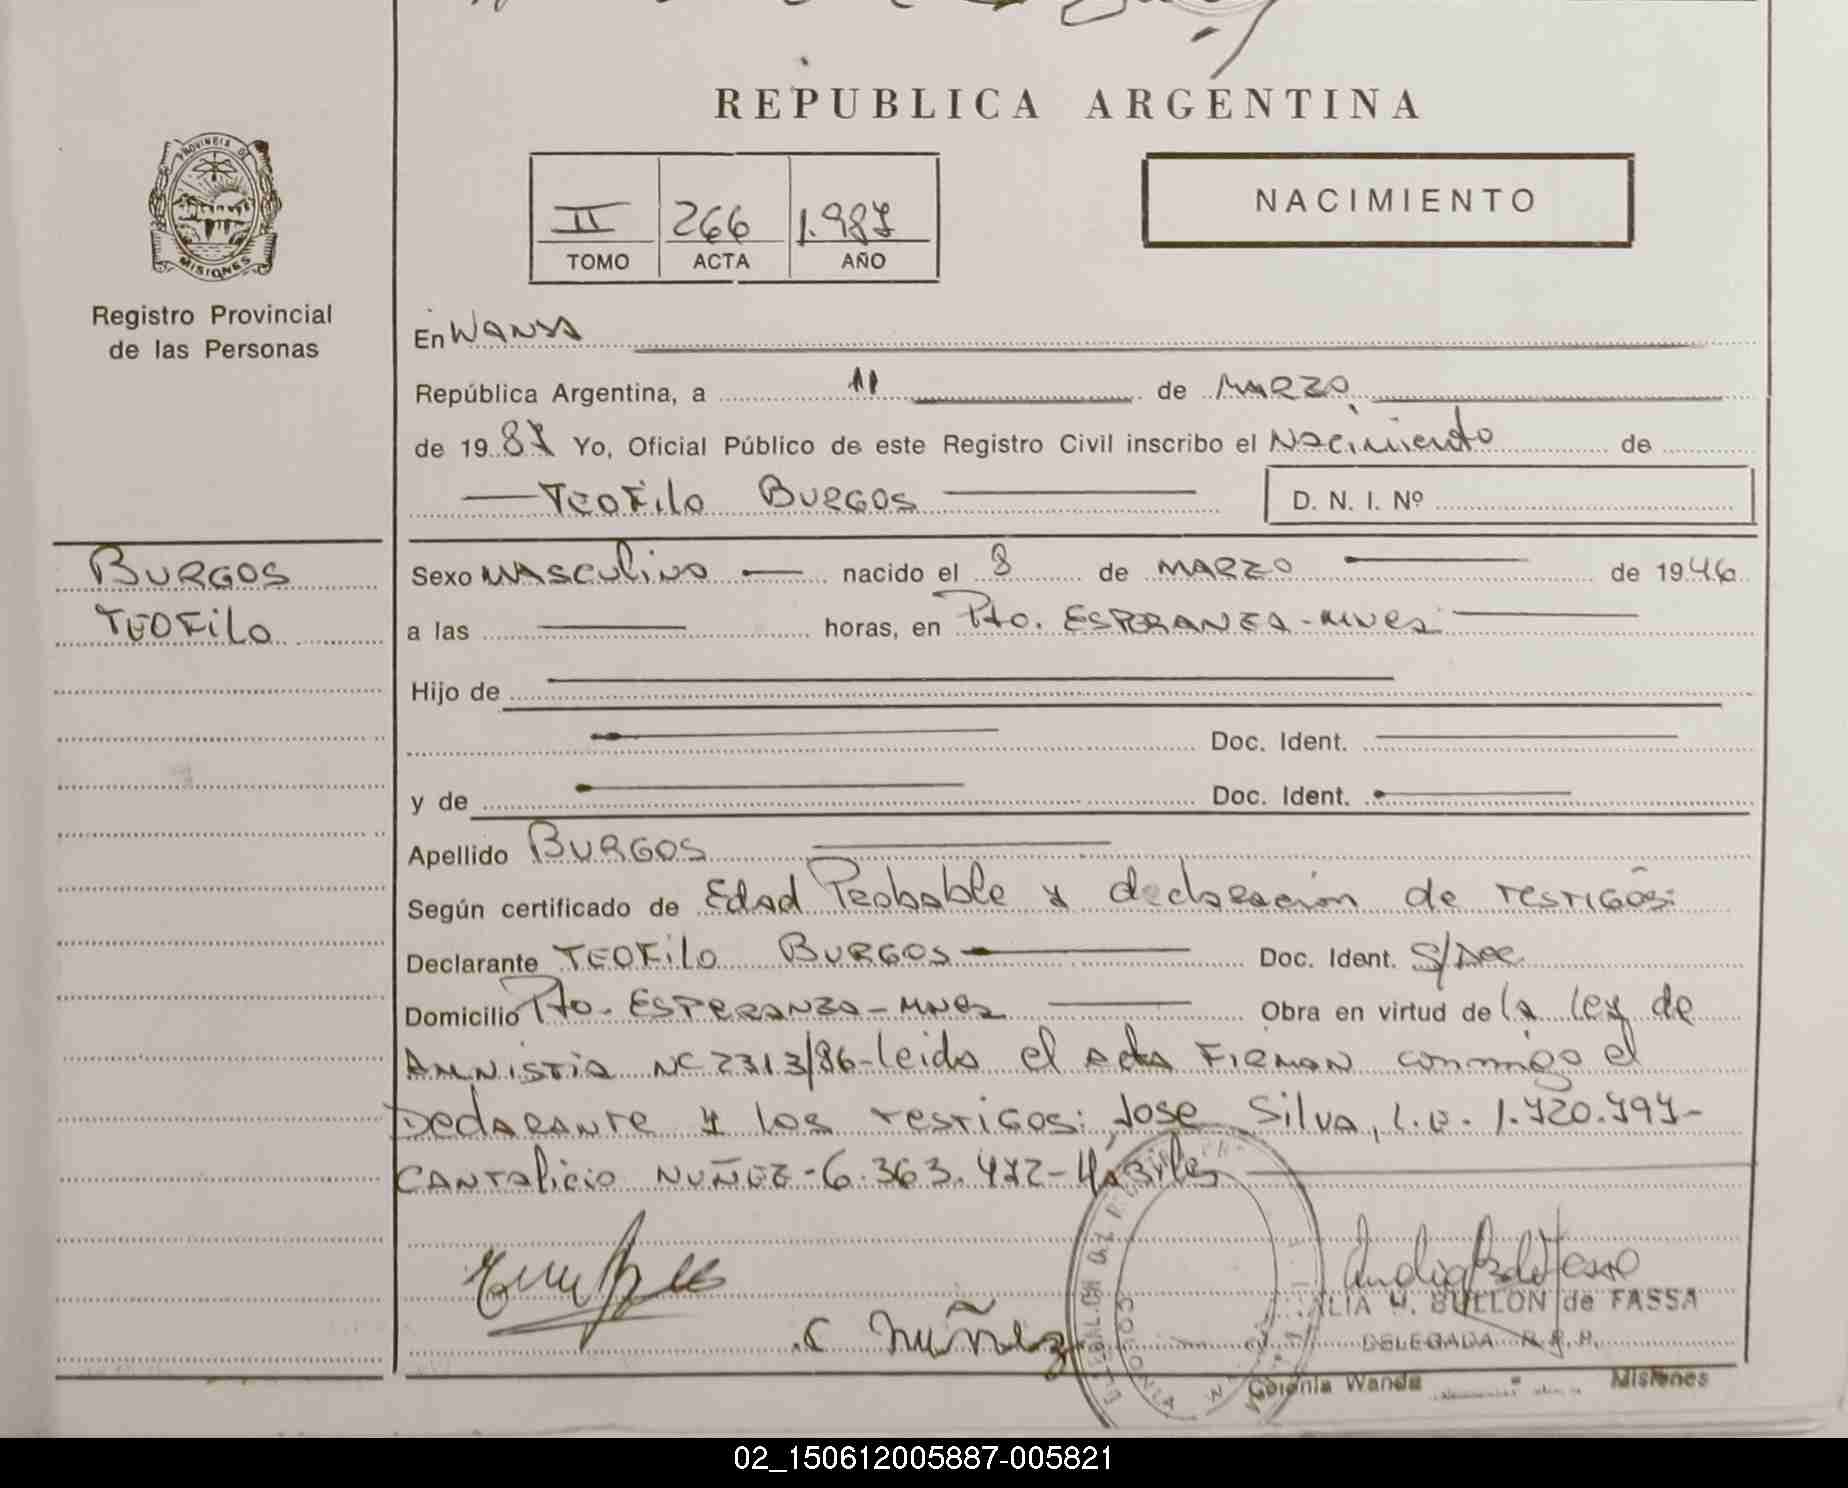 REPUBLICA ARGENTINA
PROVINCIA DE
MISIONES
Registro Provincial
de las Personas
II 266 1.987
TOMO ACTA AÑO
NACIMIENTO
En WANDA
República Argentina, a 11 de MARZO
de 19 87 Yo, Oficial Público de este Registro Civil inscribo el Nacimiento de
TEOFILO BURGOS
D. N. I. Nº
BURGOS
TEOFILO
Sexo MASCULINO nacido el 8 de MARZO de 19 46
a las horas, en Pto. ESPERANZA-MNES
Hijo de
Doc. Ident.
y de Doc. Ident.
Apellido BURGOS
Según certificado de Edad Probable y declaración de TESTIGOS:
Declarante TEOFILO BURGOS Doc. Ident. S/Doc
Domicilio Pto. ESPERANZA-MNES Obra en virtud de la Ley de
AMNISTIA Nº 2313/86-leida el acta FIRMAN conmigo el
DECLARANTE y los TESTIGOS: JOSE Silva, L.E. 1.720.797-
CANTALICIO NUÑEZ-6.363.472-
C Nuñez
LIA M. BULLON de FASSA
DELEGADA R.P.P.
Colonia Wanda Misiones
02_150612005887-005821